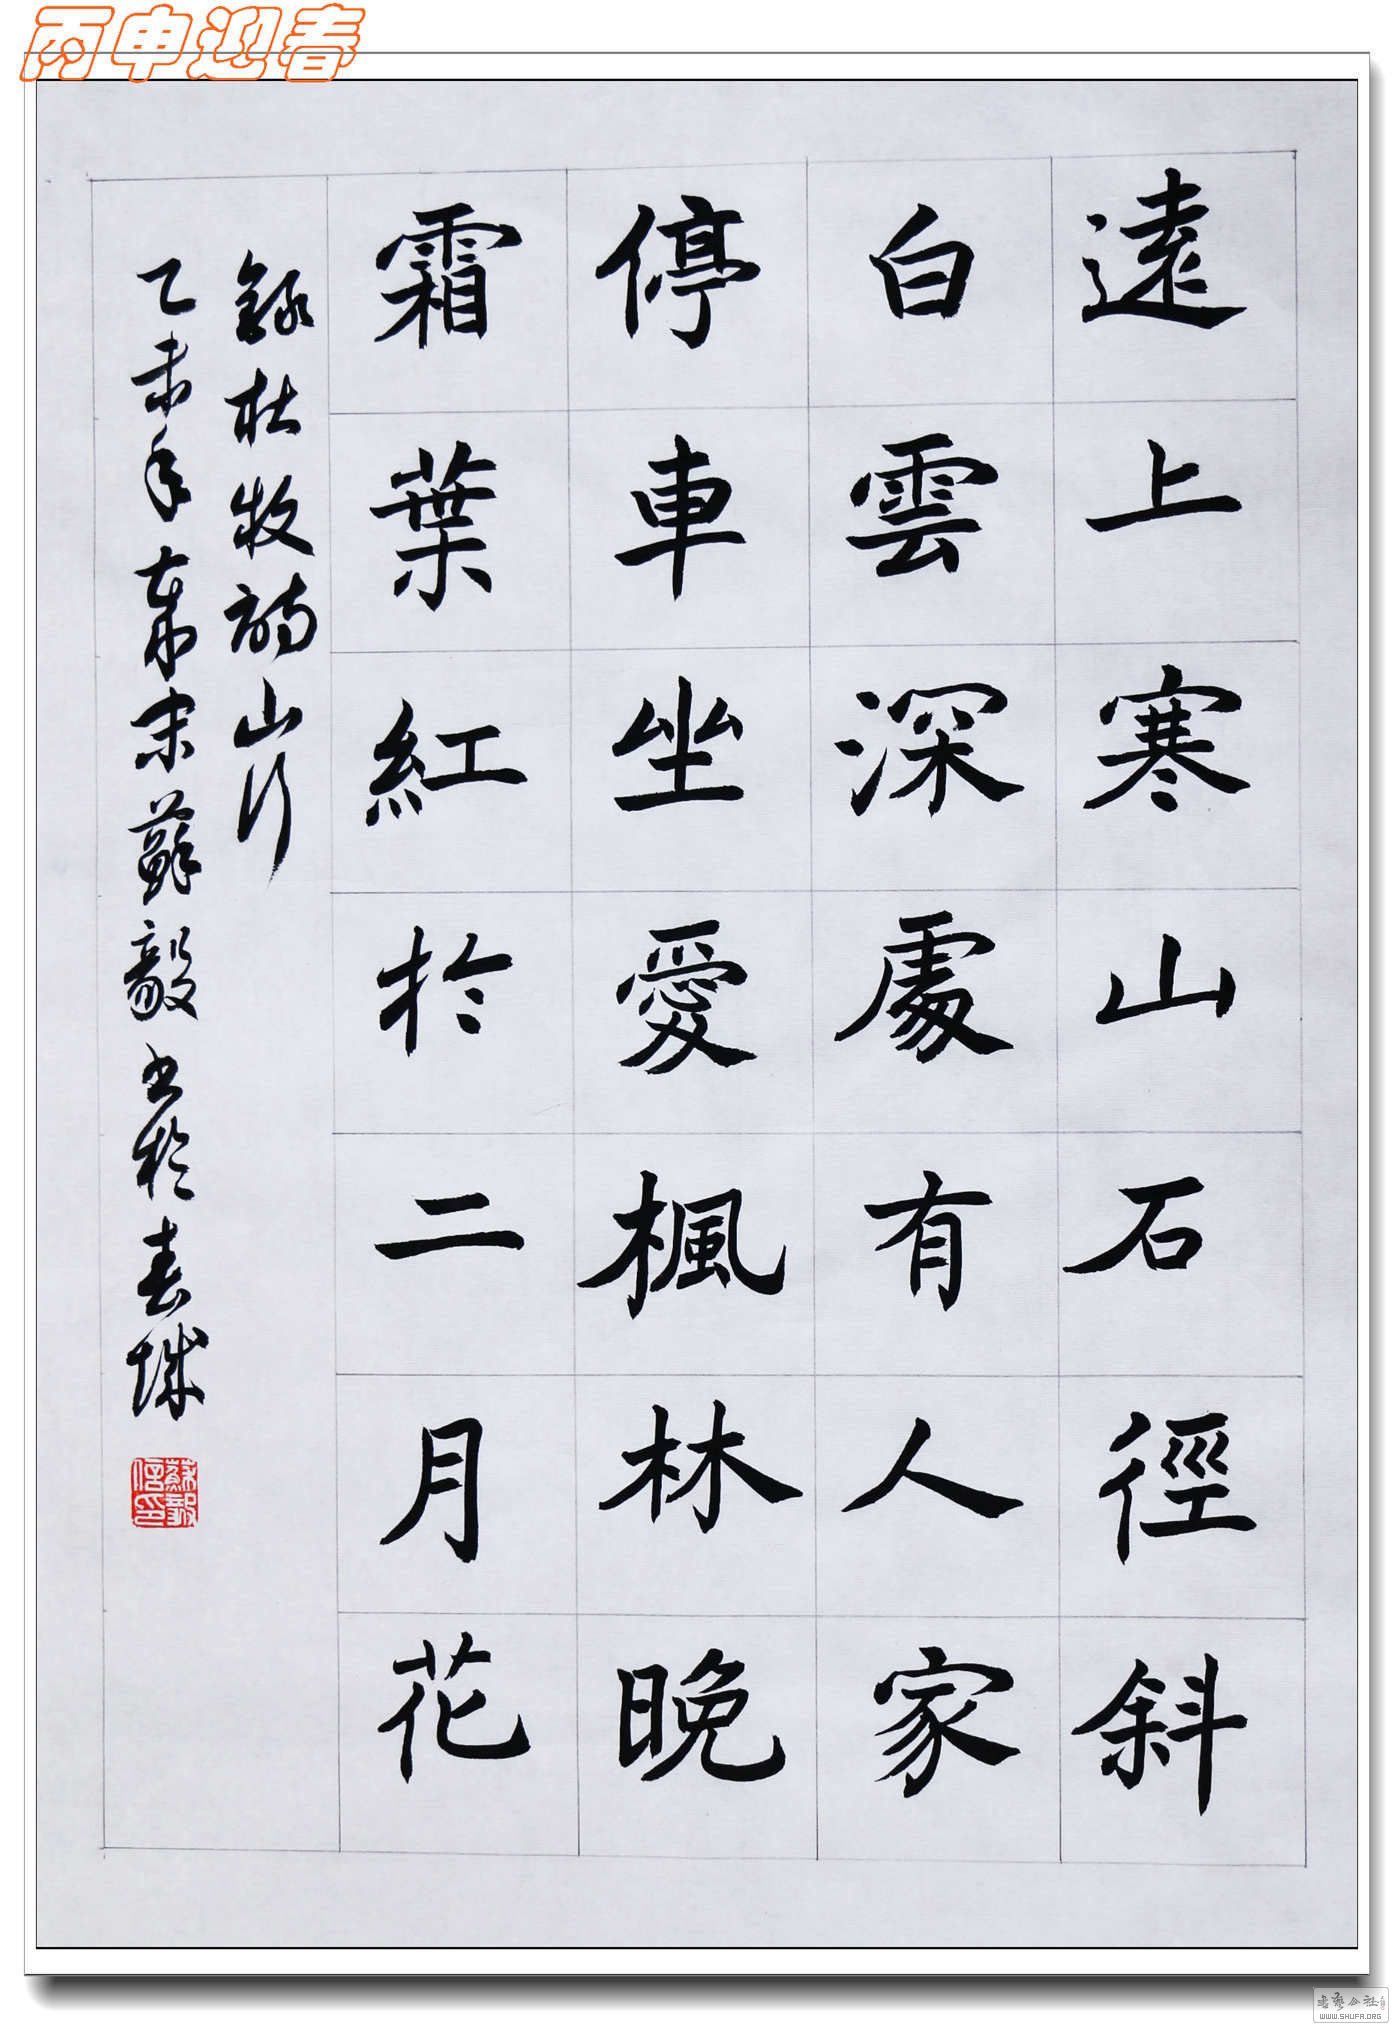 丙申迎春
遠上寒山石徑斜
白雲深處有人家
停車坐愛楓林晚
霜葉紅於二月花
錄杜牧詩山行
乙未年冬末蘇毅書於春城
蘇毅信印
書藝公社
WWW.SHUFA.ORG